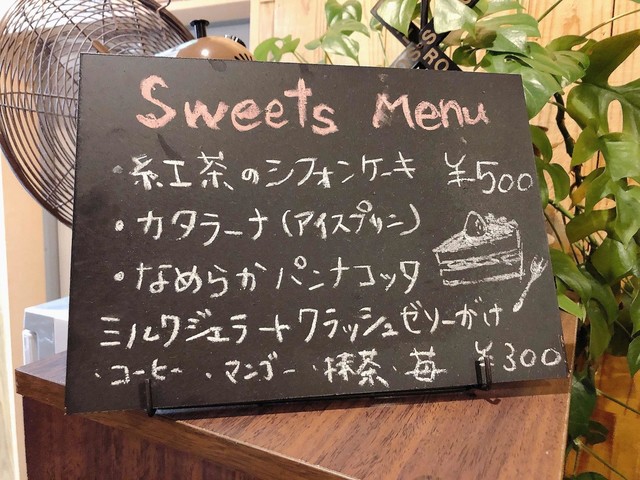 Sweets Menu
・紅茶のシフォンケーキ ¥500
・カタラーナ(アイスプリン)
・なめらかパンナコッタ
ミルクジェラートクラッシュゼリーがけ
・コーヒー ・マンゴー ・抹茶 ・苺 ¥300